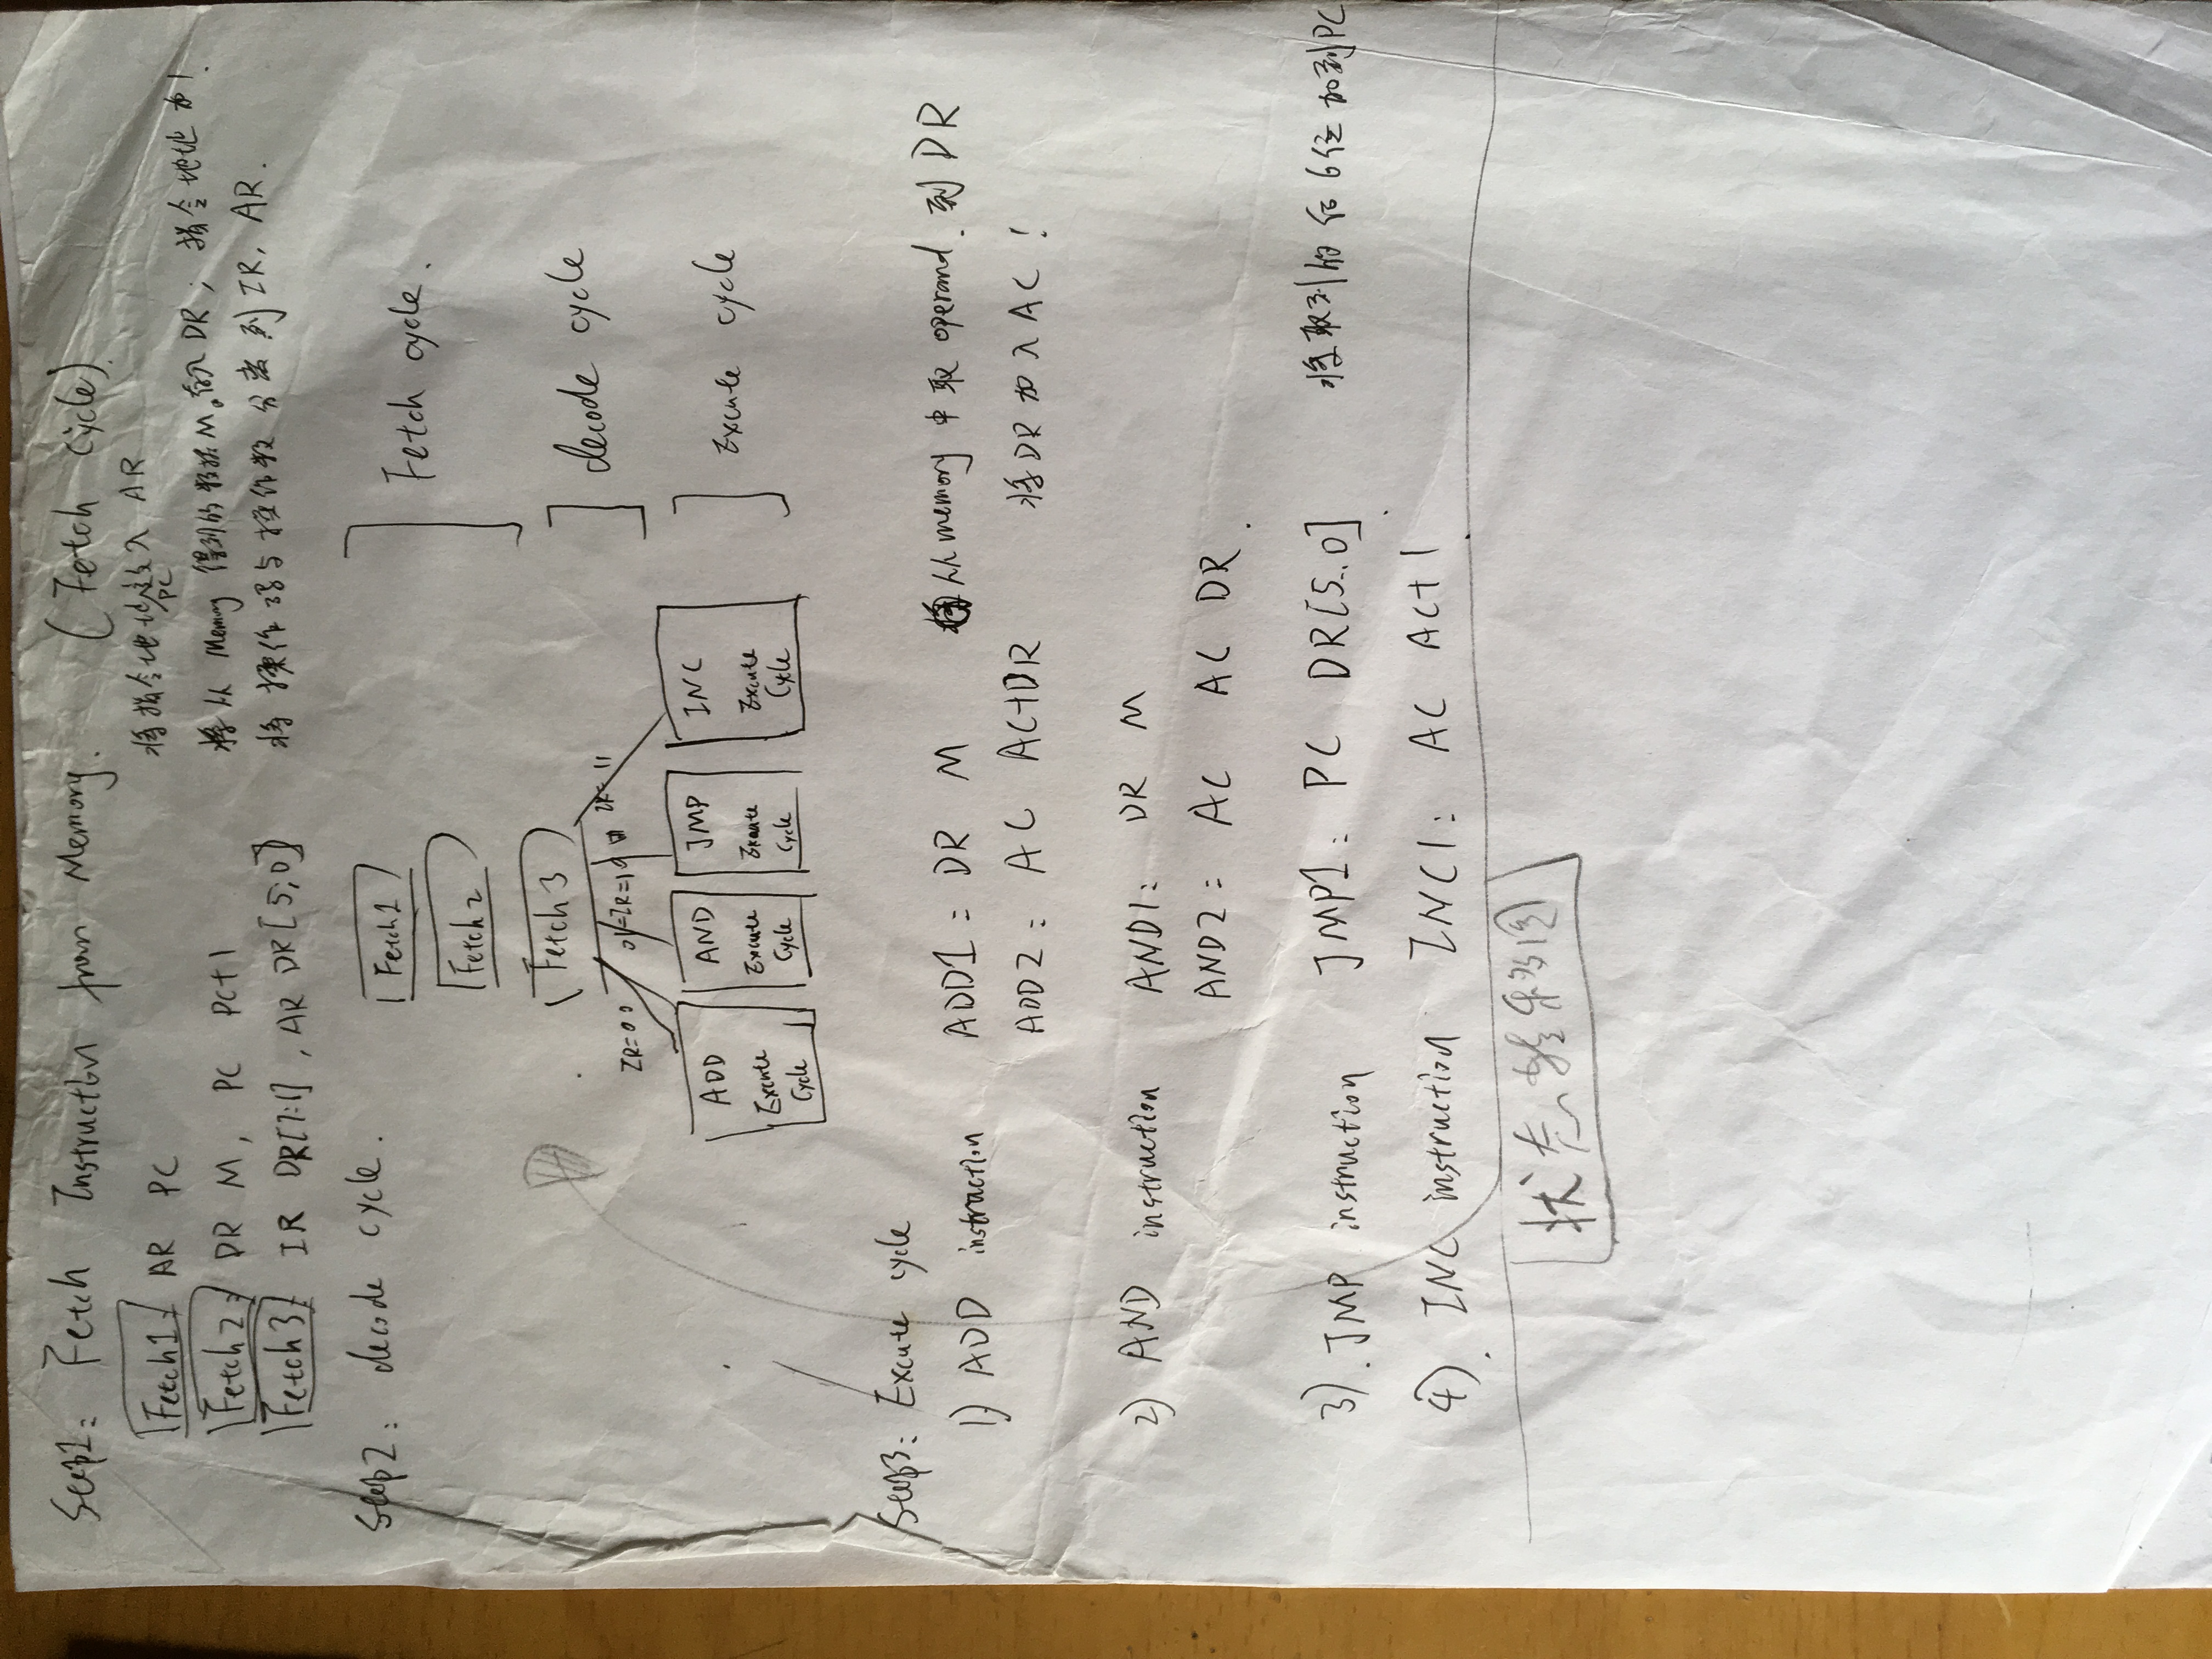 Step1: Fetch Instruction from Memory. (Fetch Cycle)
Fetch1: AR PC 将指令地址放入 AR
PC
Fetch2: DR M, PC PC+1 将从 Memory 得到的数据M。存入 DR; 指令地址加1
Fetch3: IR DR[7:1], AR DR[5;0] 将操作码与操作数分离到 IR, AR.
Step2: decode cycle.
Fetch1
Fetch2
Fetch cycle.
Fetch3
decode cycle
IR=00 01=IR=10 IR=11
ADD Excute Cycle
AND Excute Cycle
JMP Excute Cycle
INC Excute Cycle
Excute cycle
Step3: Excute cycle
1) ADD instraction ADD1: DR M 从memory中取 operand. 到 DR
ADD2: AC AC+DR 将DR加入AC!
2) AND instruction AND1: DR M
AND2: AC AC DR.
3). JMP instruction JMP1: PC DR[5..0] 将取到的后6位加到PC
4). INC instruction INC1: AC AC+1
状态 图